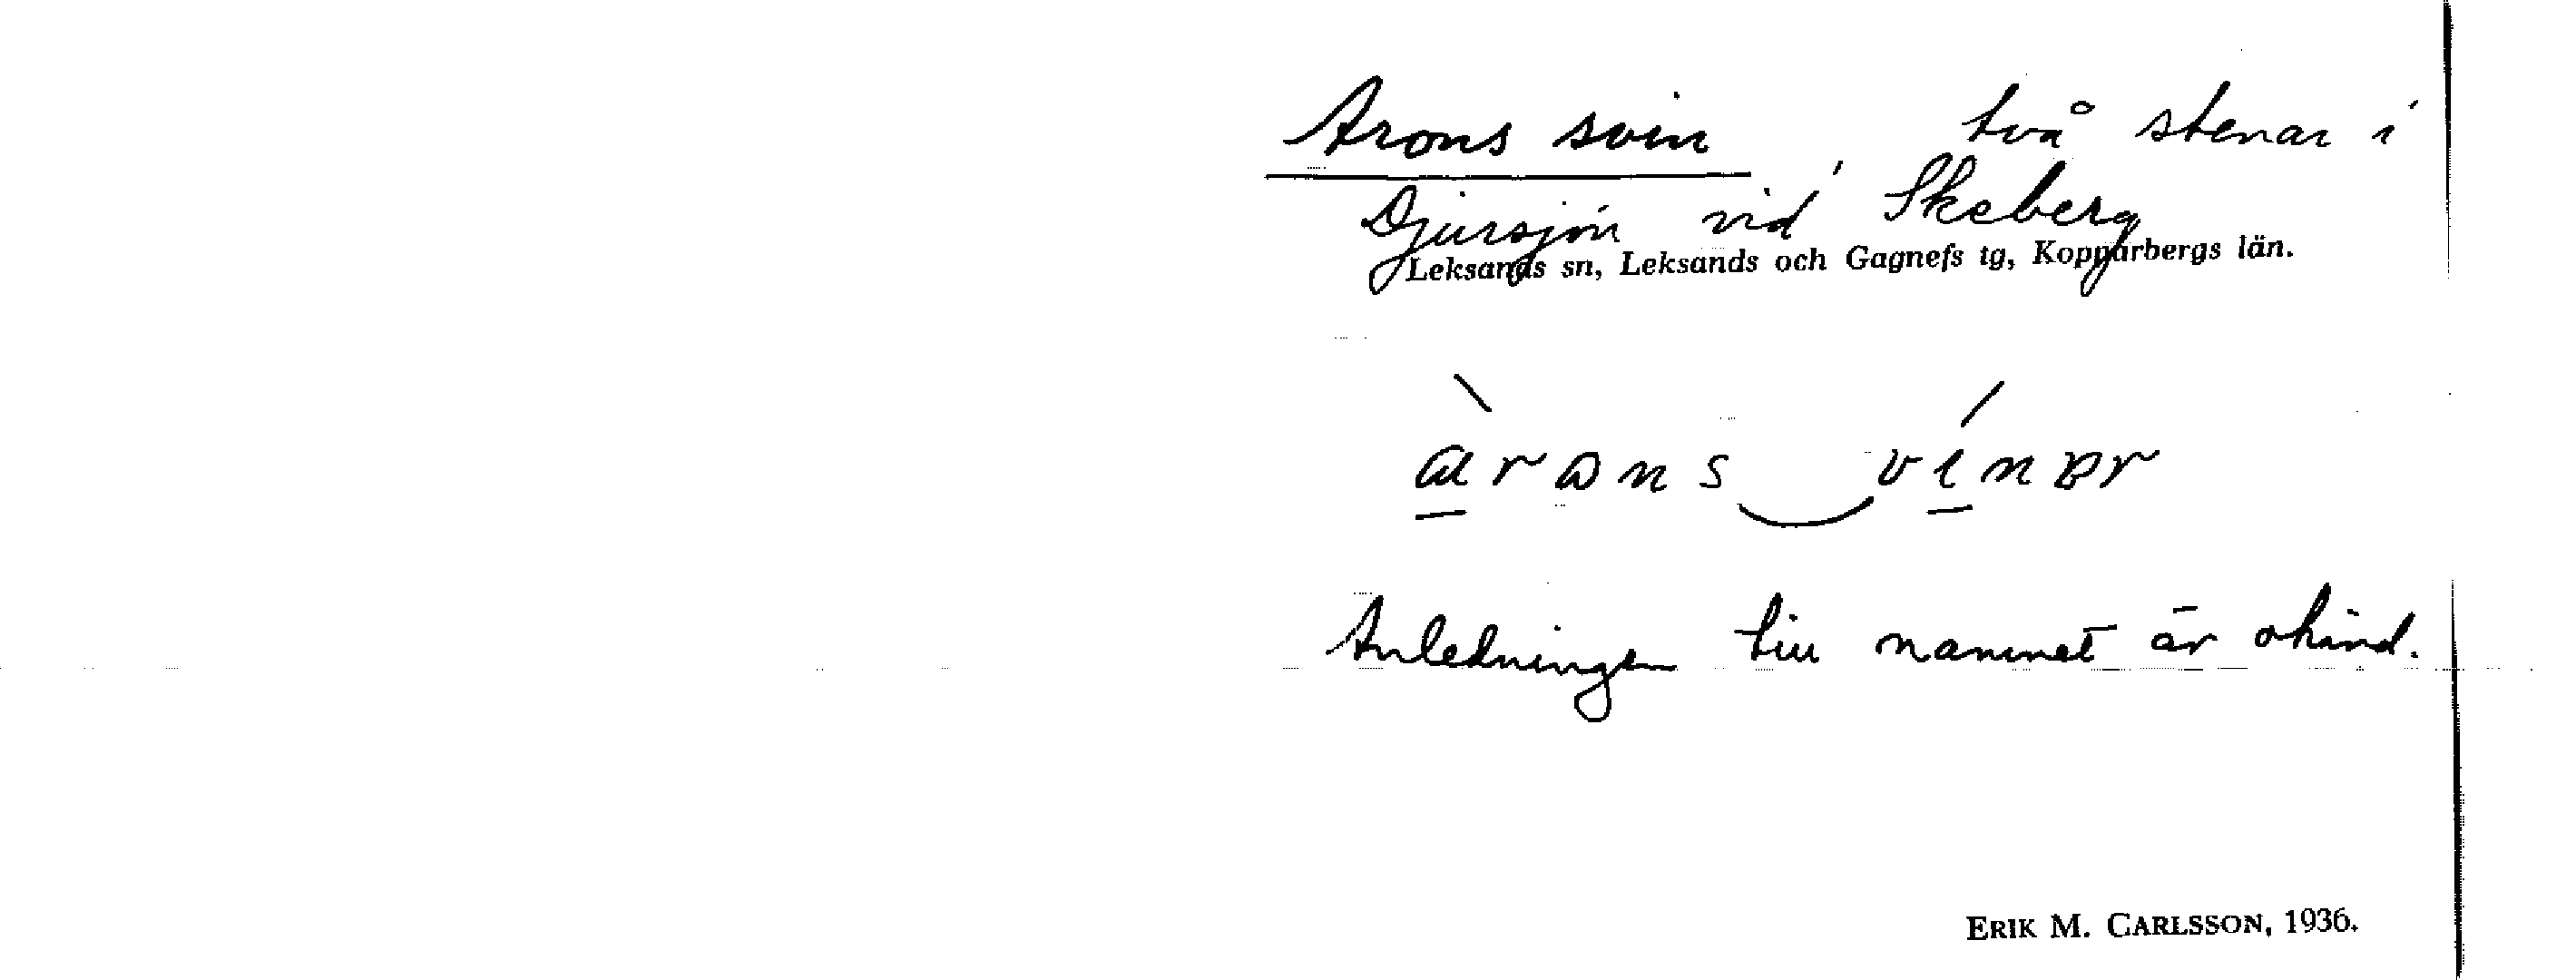 Arons svin, två stenar i
Djursjön vid Skeberg
Leksands sn, Leksands och Gagnefs tg, Kopparbergs län.
Anledningen till namnet är okänd.
ERIK M. CARLSSON, 1936.